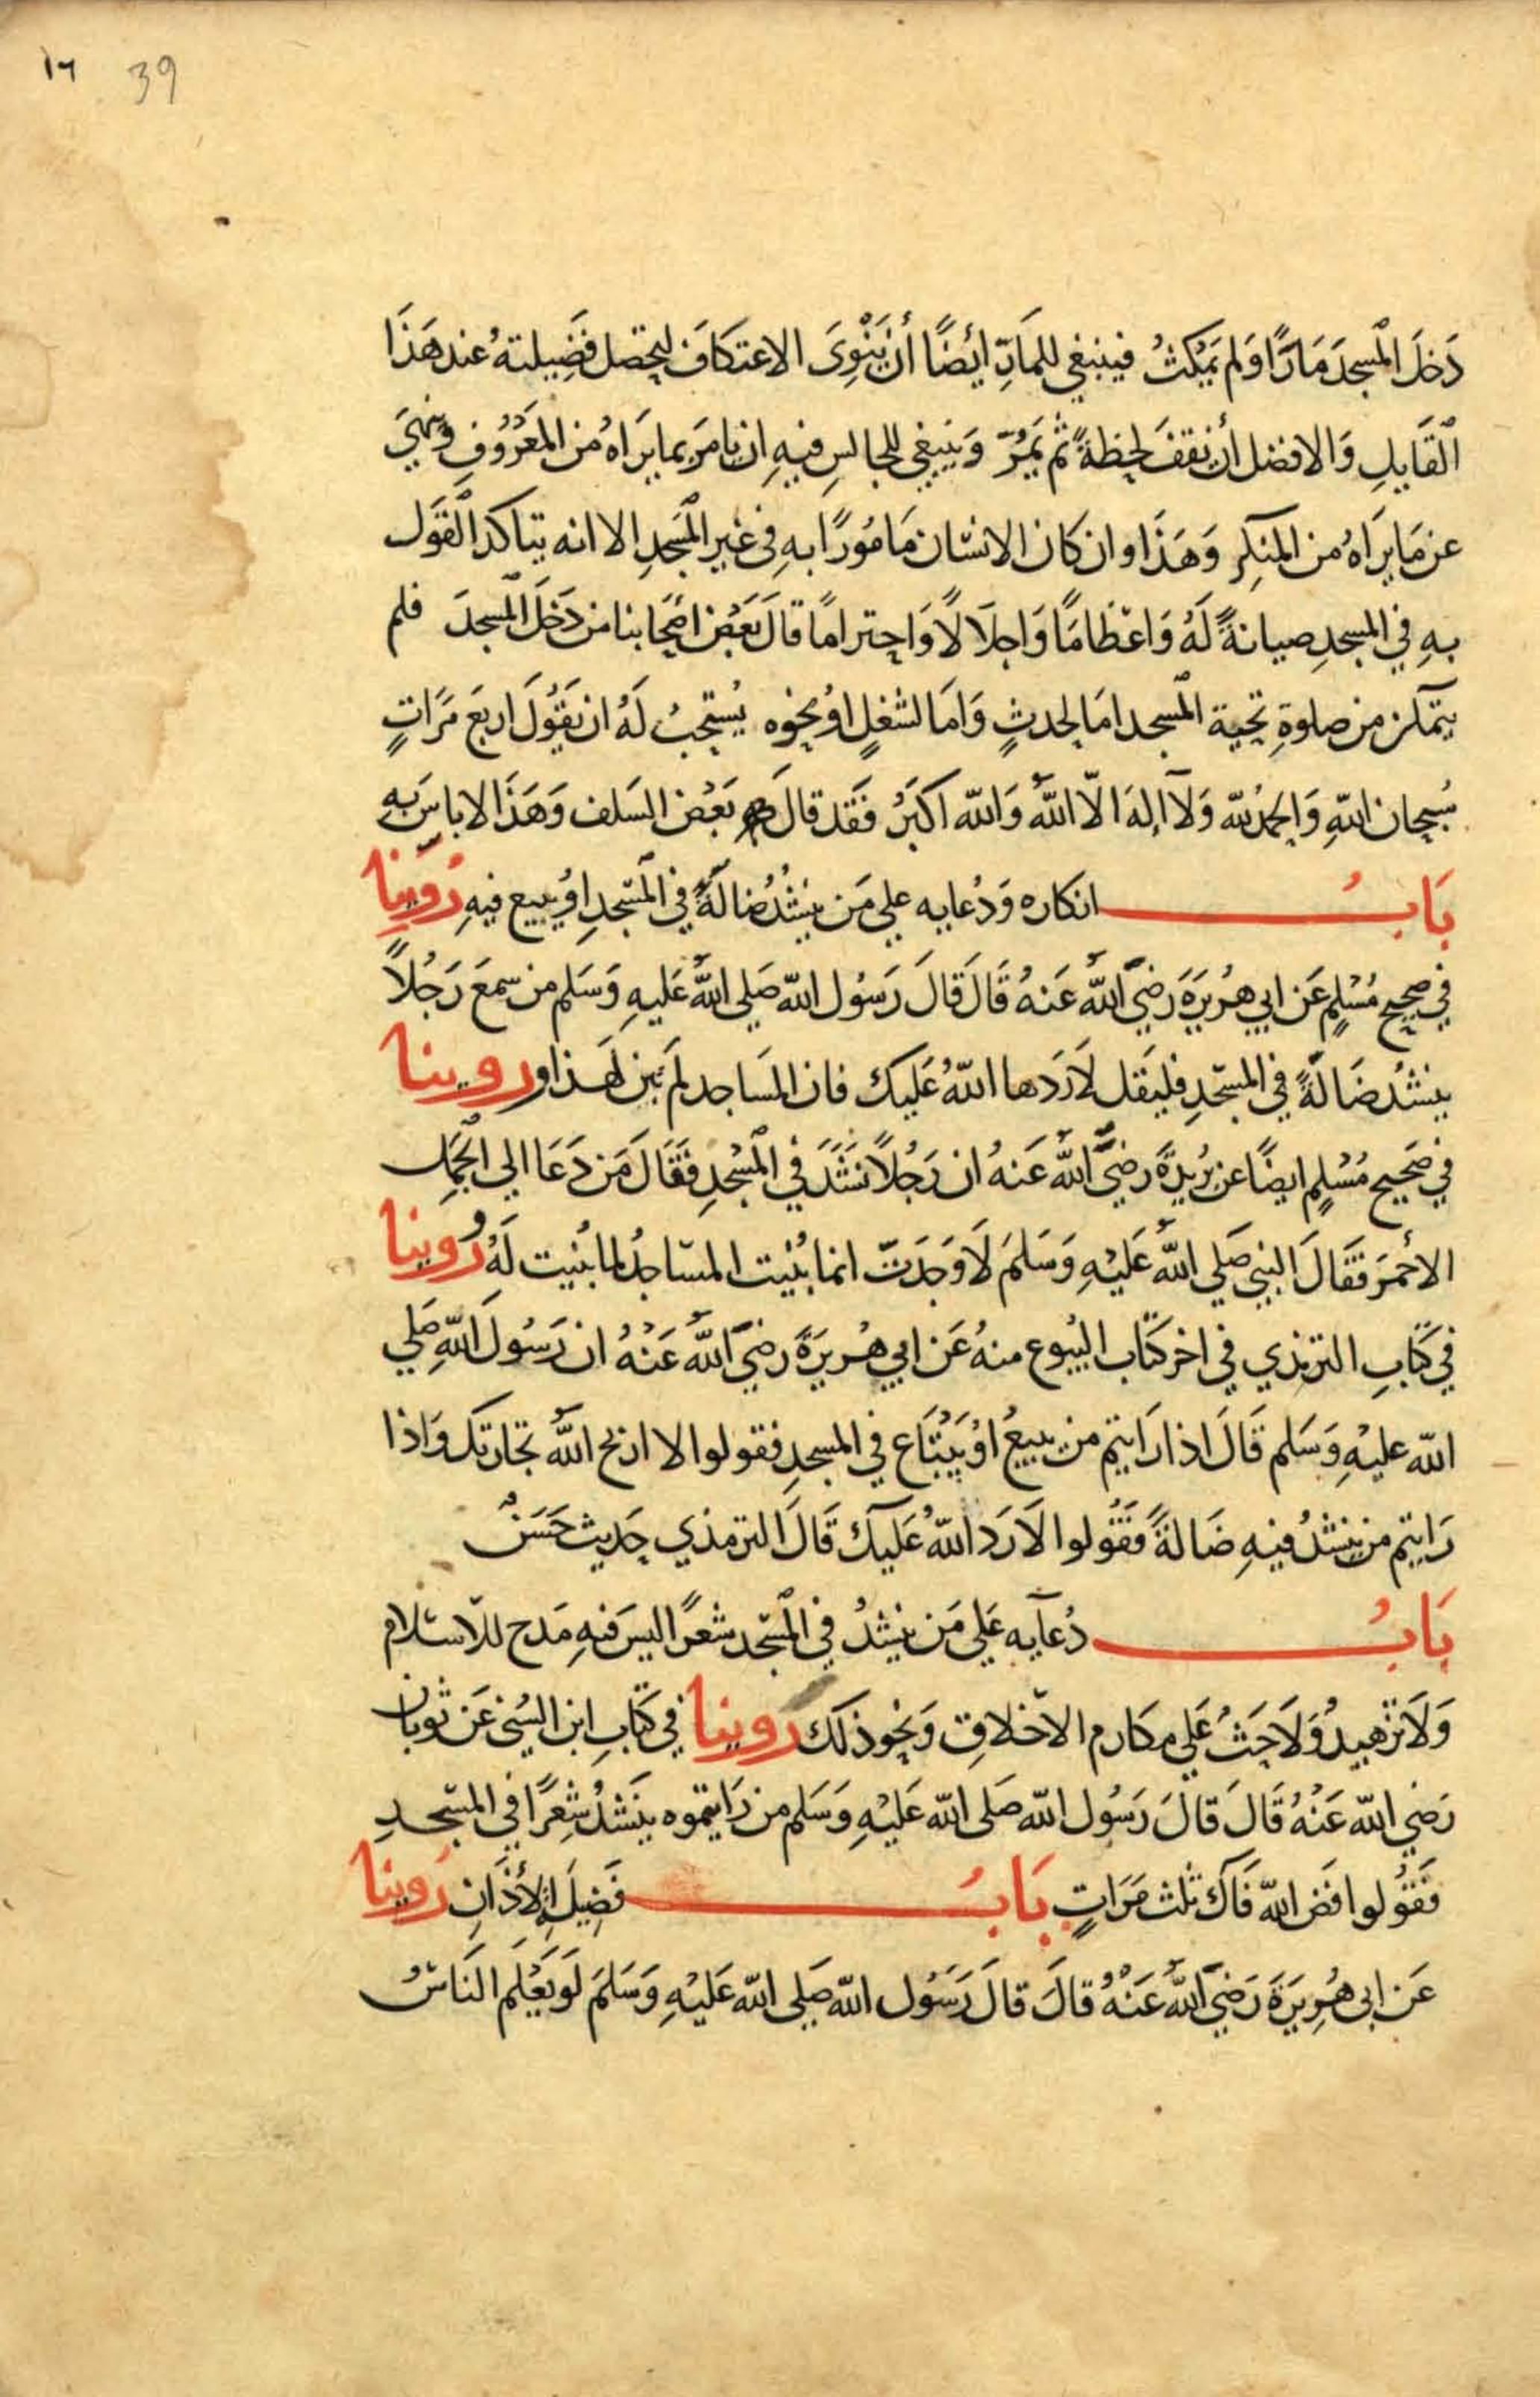 ١٦ 39
دَخَلَ المسجدَ مَارًّا وَلم يَمكثُ فينبغي للمَارِّ ايضًا أن يَنْوِىَ الاعتكافَ ليحصل فَضِيلتهُ عند هَذَا
القَايلِ وَالافضل أن يقفَ لحظةً ثم يَمُرّ وَينبغي للجالسِ فيهِ ان يامرَ بما يرَاهُ من المعَرُوفِ وَينهيَ
عن مَا يرَاهُ من المنكِر وَهَذَا وان كَان الانسَان مَامُورًا بهِ فى غير المسَجدِ الا انه يتاكد القَول
بهِ في المسجدِ صيانةً لَهُ وَاعْظامًا وَاجلَالًا وَاحترامًا قالَ بَعَض اصَحابنا من دَخَلَ المسجدَ فلم
يتمكن من صلوةِ تحية المسجد امَا لحدثٍ وَامَا لشغلٍ اوُ نحوه يُستحبُ لَهُ ان يَقُولَ اربَع مَرَّاتٍ
سُبحان اللهِ وَالحمدُ لله وَلَا إلهَ الّا اللهُ وَالله اكبَرُ فَقَد قالَ بهِ بَعَضُ السَلف وَهَذَا لا باسَ بهِ
بَابُ انكاره وَدُعايه علي مَن ينشُدُ ضالةً في المسَجدِ اوُ يبيع فيهِ رُوّينا
في صحيح مُسْلمٍ عَن ابي هُريرَةَ رَضيَ اللهُ عَنهُ قَالَ قَالَ رَسُول الله صَلي اللهُ عَليهِ وَسَلم من سمعَ رَجُلاً
ينشُد ضَالةً في المسَجدِ فليقَل لَا رَدَها اللهُ عَليك فان المسَاجد لم تبن لهَذا وروينا
في صَحيح مُسْلمٍ ايضًا عن بُريدَةَ رضيَ اللهُ عَنهُ ان رَجُلًا نَشَدَ في المسْجدِ فَقَالَ مَن دَعَا الي الجَمل
الأحْمَرَ فَقَالَ النبي صَلي اللهُ عَليْهِ وَسَلمَ لَا وَجَدَتَ انما بُنْيت المسَاجدُ لما بُنيت لَهُ رُوينا
في كتابِ الترمذي في اخر كتَاب البُيوع منهُ عَن ابي هُريرَةَ رضيَ اللهُ عَنْهُ ان رَسُولَ اللهِ صَلي
الله عليهِ وَسَلم قَالَ اذا رَايتم من يبيعُ اوْ يَبْتَاع في المسجدِ فقولوا لا اربح اللهُ تجارتكَ وَاذا
رَايتم من ينشدُ فيهِ ضَالةً فَقُولوا لَا رَد اللهُ عَليكَ قَالَ الترمذي حَديث حَسَنٌ
بَابُ دُعآيه عَلي مَن ينشدُ في المسَجد شعرًا ليسَ فيهِ مَدح للاسَلام
وَلَا تزهيدُ وَلَا حَثُ عَلي مكارم الاخلاقِ وَنحو ذلك رَوينا في كتابِ ابن السُني عَن ثوبان
رَضي الله عَنْهُ قَالَ قالَ رَسُول الله صَلى الله عَليْهِ وَسَلم من رَايتموه ينَشدُ شِعرًا في المسَجدِ
فَقُولوا فَض الله فَاكَ ثلث مَرَاتٍ بَابُ فَضِيلَةِ الأَذَانِ رَوينا
عَن ابى هُرِيرَةَ رَضيَ اللهُ عَنْهُ قالَ قالَ رَسُول الله صَلي الله عَليْهِ وَسَلمَ لَو يَعْلم النَاسُ